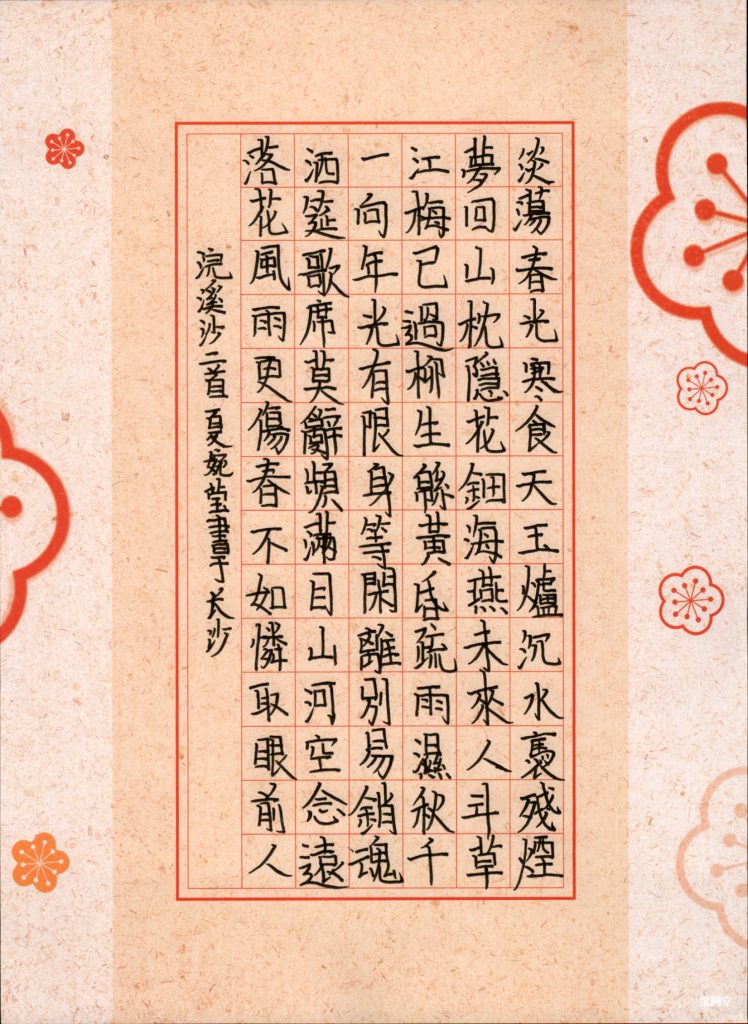 淡蕩春光寒食天玉爐沉水裊殘煙
夢回山枕隱花鈿海燕未來人斗草
江梅已過柳生綿黃昏疏雨濕秋千
一向年光有限身等閑離別易銷魂
酒筵歌席莫辭頻滿目山河空念遠
落花風雨更傷春不如憐取眼前人
浣溪沙二首夏婉瑩書于长沙